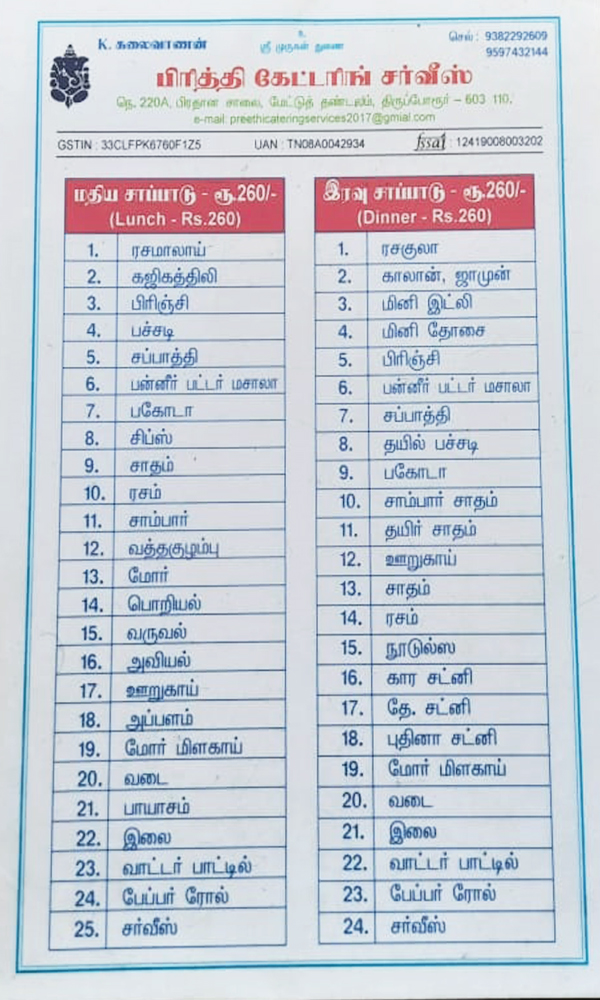 உ
K. கலைவாணன்
ஸ்ரீ முருகன் துணை
செல் : 9382292609
9597432144
பிரித்தி கேட்டரிங் சர்வீஸ்
நெ. 220A, பிரதான சாலை, மேட்டுத் தண்டலம், திருப்போரூர் – 603 110.
e-mail: preethicateringservices2017@gmial.com
GSTIN : 33CLFPK6760F1Z5 UAN : TN08A0042934 fssai : 12419008003202
மதிய சாப்பாடு - ரூ.260/-
(Lunch - Rs.260)
1. ரசமாலாய்
2. கஜிகத்திலி
3. பிரிஞ்சி
4. பச்சடி
5. சப்பாத்தி
6. பன்னீர் பட்டர் மசாலா
7. பகோடா
8. சிப்ஸ்
9. சாதம்
10. ரசம்
11. சாம்பார்
12. வத்தகுழம்பு
13. மோர்
14. பொறியல்
15. வருவல்
16. அவியல்
17. ஊறுகாய்
18. அப்பளம்
19. மோர் மிளகாய்
20. வடை
21. பாயாசம்
22. இலை
23. வாட்டர் பாட்டில்
24. பேப்பர் ரோல்
25. சர்வீஸ்
இரவு சாப்பாடு - ரூ.260/-
(Dinner - Rs.260)
1. ரசகுலா
2. காலான், ஜாமுன்
3. மினி இட்லி
4. மினி தோசை
5. பிரிஞ்சி
6. பன்னீர் பட்டர் மசாலா
7. சப்பாத்தி
8. தயில் பச்சடி
9. பகோடா
10. சாம்பார் சாதம்
11. தயிர் சாதம்
12. ஊறுகாய்
13. சாதம்
14. ரசம்
15. நூடுல்ஸ
16. கார சட்னி
17. தே. சட்னி
18. புதினா சட்னி
19. மோர் மிளகாய்
20. வடை
21. இலை
22. வாட்டர் பாட்டில்
23. பேப்பர் ரோல்
24. சர்வீஸ்